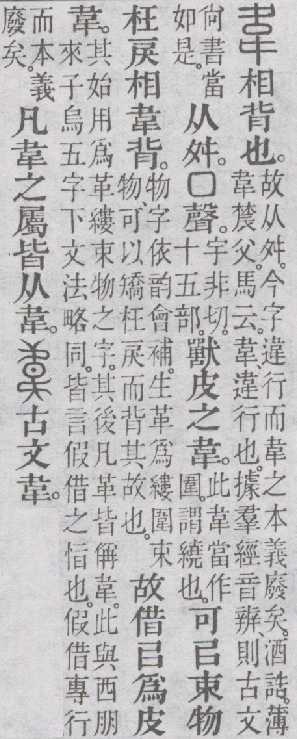 相背也。
故从舛。今字違行而韋之本義廢矣。酒誥。薄
韋辳父。馬云。韋、違行也。據羣經音辨、則古文
尙書當
如是。
从舛。囗聲。
字非切。
十五部。
獸皮之韋。
此韋當作
圍。謂繞也。
可㠯束物
枉戾相韋背。
物字依韵會補。生革爲縷圍束
物、可以矯枉戾而背其故也。
故借㠯爲皮
韋。
其始用爲革縷束物之字。其後凡革皆偁韋。此與西朋
來子烏五字下文法略同。皆言假借之恉也。假借專行
而本義
廢矣。
凡韋之屬皆从韋。
古文韋。